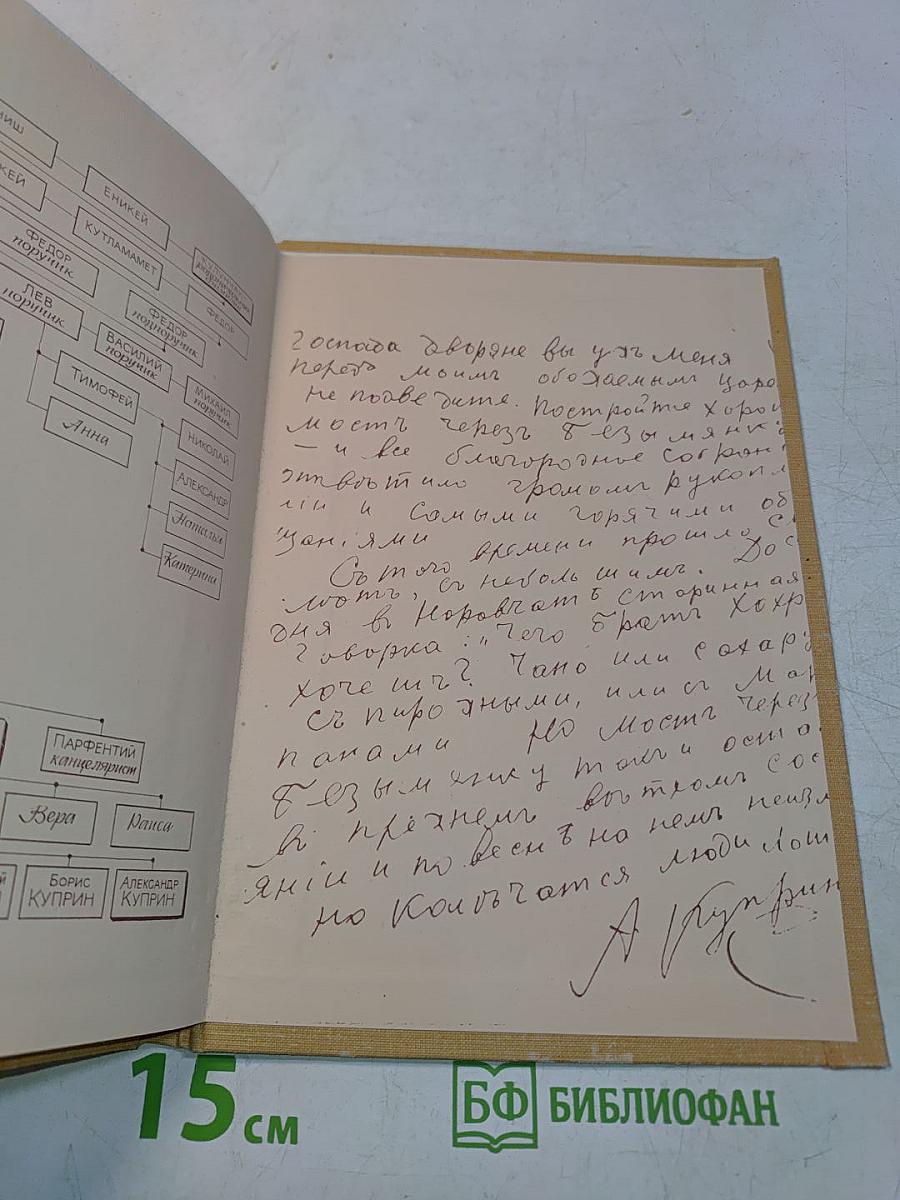 МИШ
КЕЙ
ЕНИКЕЙ
КУТЛАМАМЕТ
ФЕДОР
поручик
ФЕДОР
ЛЕВ
поручик
ФЕДОР
подпоручик
ВАСИЛИЙ
поручик
ТИМОФЕЙ
МИХАИЛ
поручик
Анна
НИКОЛАЙ
АЛЕКСАНДР
Наталья
Катерина
ПАРФЕНТИЙ
канцелярист
Вера
Раиса
Й
Борис
КУПРИН
АЛЕКСАНДР
КУПРИН
Господа дворяне вы ужъ меня
передъ моимъ обожаемымъ царе
не подведите. Постройте хорош
мостъ черезъ Безымянк
— и все благородное собран
отвѣтило громомъ рукопл
ній и самыми горячими об
щаніями
Съ того времени прошло с
лѣтъ, съ небольшимъ. До с
дня въ Наровчатѣ старинная
говорка: „Чего братъ хохр
хочешь? Чаю или сахару
съ пирожными, или съ мар
панами Но мостъ через
Безымянку такъ и оста
въ прежнемъ ветхомъ сос
яніи и по веснѣ на немъ неизм
но калѣчатся люди лош
А Куприн
15 см
БФ БИБЛИОФАН